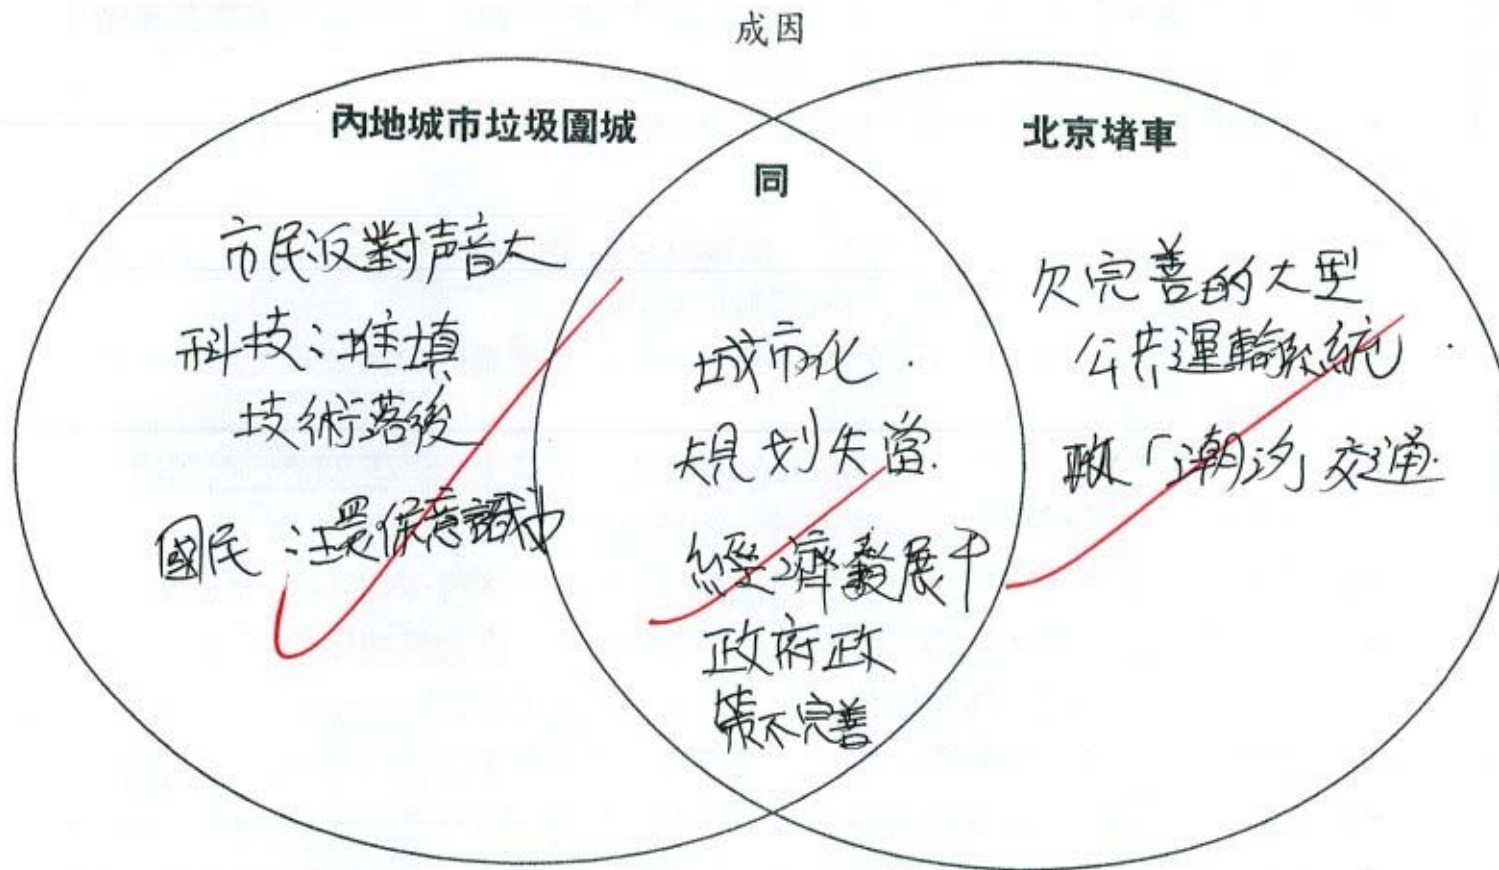 成因
內地城市垃圾圍城
市民反對声音大
科技：堆填
技術落後
國民：環保意識
同
城市化
規划失當
經濟發展
政府政
策不完善
北京堵車
欠完善的大型
公共運輸系統
「潮汐」交通